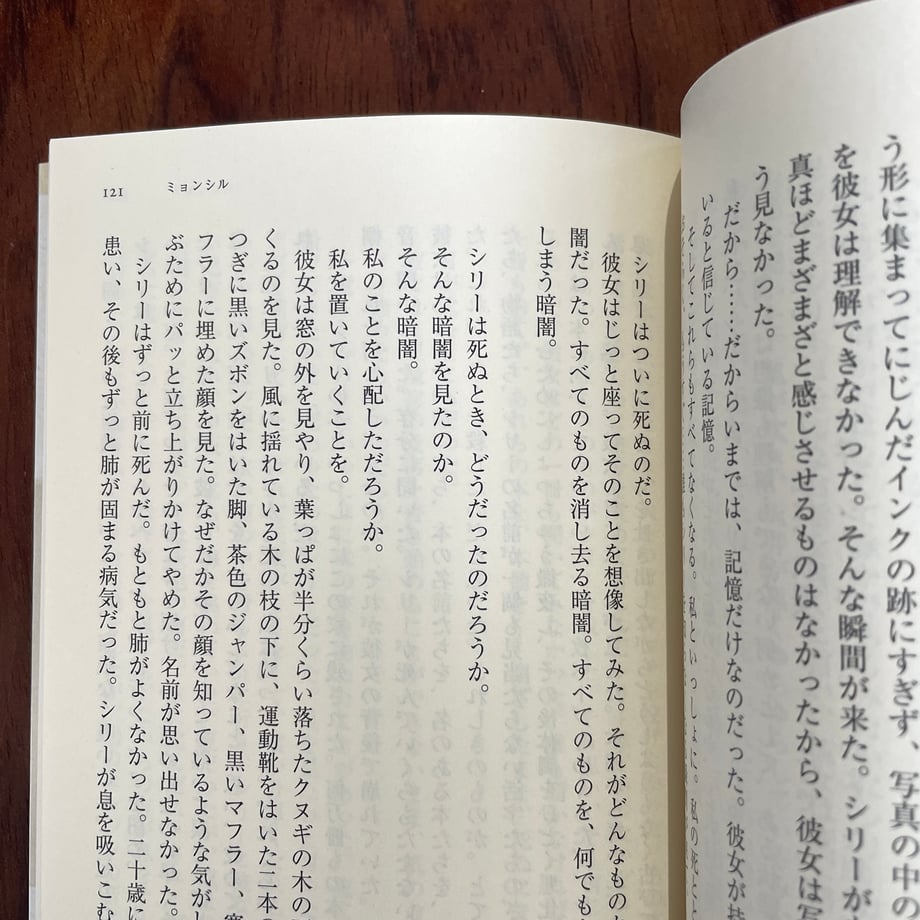 う形に集まってにじんだインクの跡にすぎず、写真の中の
を彼女は理解できなかった。そんな瞬間が来た。シリーが
真ほどまざまざと感じさせるものはなかったから、彼女は写
う見なかった。
だから……だからいまでは、記憶だけなのだった。彼女が
いると信じている記憶。
そしてこれらもすべてなくなる。私といっしょに。私の死と
121 ミョンシル
シリーはついに死ぬのだ。
彼女はじっと座ってそのことを想像してみた。それがどんなもの
闇だった。すべてのものを消し去る暗闇。すべてのものを、何でも
しまう暗闇。
シリーは死ぬとき、どうだったのだろうか。
そんな暗闇を見たのか。
そんな暗闇。
私のことを心配しただろうか。
私を置いていくことを。
彼女は窓の外を見やり、葉っぱが半分くらい落ちたクヌギの木の
くるのを見た。風に揺れている木の枝の下に、運動靴をはいた二本の
つぎに黒いズボンをはいた脚、茶色のジャンパー、黒いマフラー、
フラーに埋めた顔を見た。なぜだかその顔を知っているような気が
ぶためにパッと立ち上がりかけてやめた。名前が思い出せなかった。
シリーはずっと前に死んだ。もともと肺がよくなかった。二十歳に
患い、その後もずっと肺が固まる病気だった。シリーが息を吸いこむ